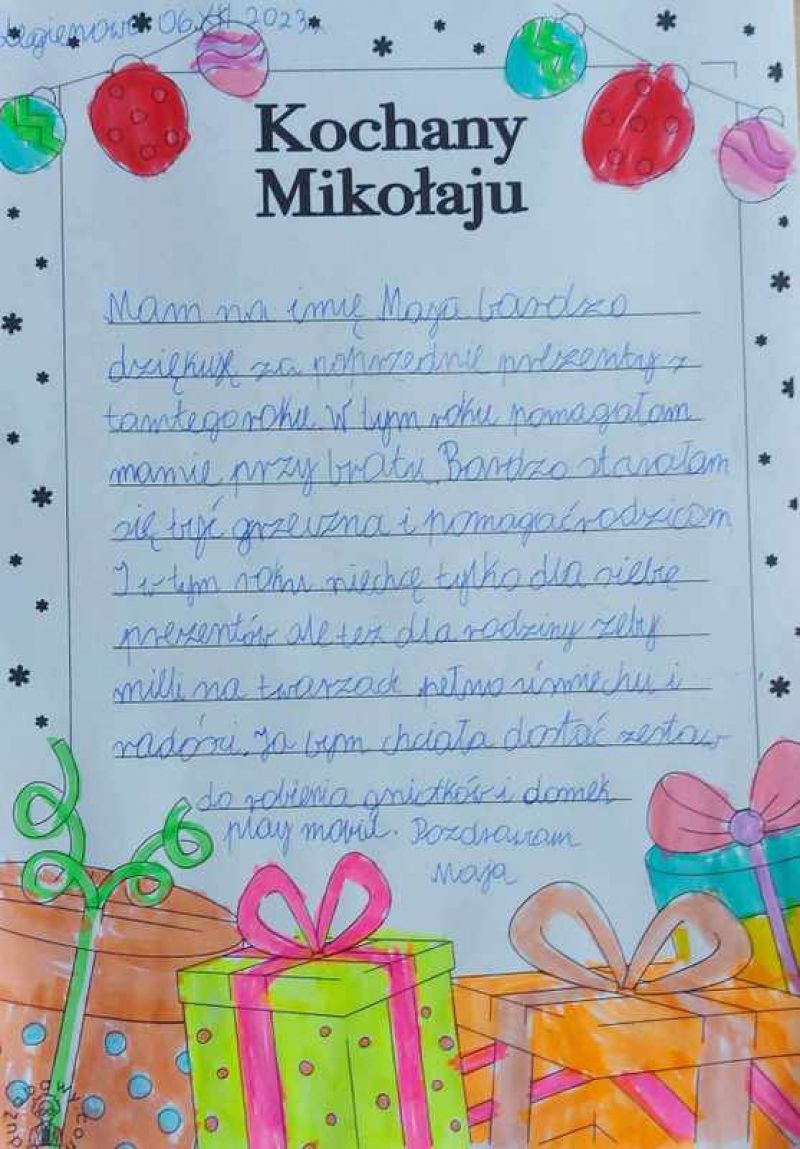 Legionowo 06.XII 2023r.
Kochany
Mikołaju
Mam na imię Maja bardzo
dziękuję za poprzednie prezenty z
tamtego roku. W tym roku pomagałam
mamie przy bratu. Bardzo starałam
się być grzeczna i pomagać rodzicom
I w tym roku niechcę tylko dla siebie
prezentów ale też dla rodziny żeby
milli na twarzach pełno uśmiechu i
radości. Ja bym chciała dostać zestaw
do robienia gniotków i domek
play mobil. Pozdrawiam
Maja